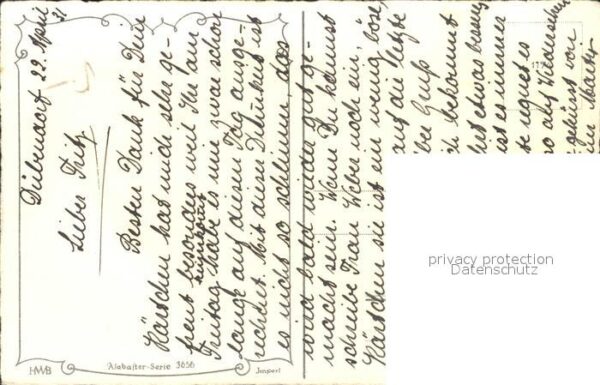 Dübendorf 22. April 31
Lieber Fritz
Besten Dank für Dein
Kärtchen hat mich sehr ge-
freut besonders weil Ihr am
Freitag kommt habe es mir zwar schon
lange auf diesen Tag ausge-
rechnet. Mit diesen ist
es nicht so schlimm das
wird bald wieder gut ge-
macht sein. Wenn Du kannst
schreibe Frau Weber noch ein,
Kärtchen sie ist ein wenig böse,
auf die letzte
Gruß
bekommt
etwas
ist es immer
regnet es
auf Wiedersehen
gegrüsst von
HWB
Alabaster-Serie 3656
Import
privacy protection
Datenschutz